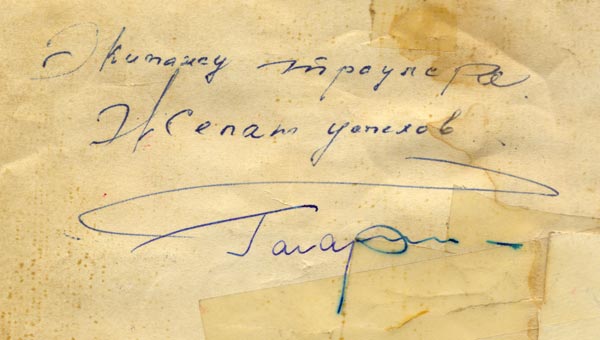 Экипажу траулера.
Желаю успехов
Гагарин